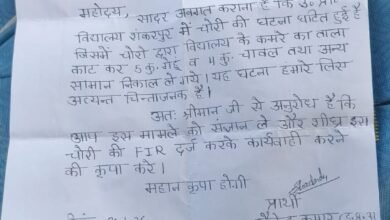 महोदय, सादर अवगत कराना है कि उ० प्रा०
विद्यालय शंकरपुर में चोरी की घटना घटित हुई है
जिसमें चोरों द्वारा विद्यालय के कमरे का ताला
काट कर 5 कु. गेहूं व 4 कु. चावल तथा अन्य
सामान निकाल ले गये। यह घटना हमारे लिए
अत्यन्त चिन्ताजनक है।
अतः श्रीमान् जी से अनुरोध है कि
आप इस मामले को संज्ञान ले और शीघ्र इस
चोरी की FIR दर्ज करके कार्यवाही करने
की कृपा करे।
महान कृपा होगी
प्रार्थी